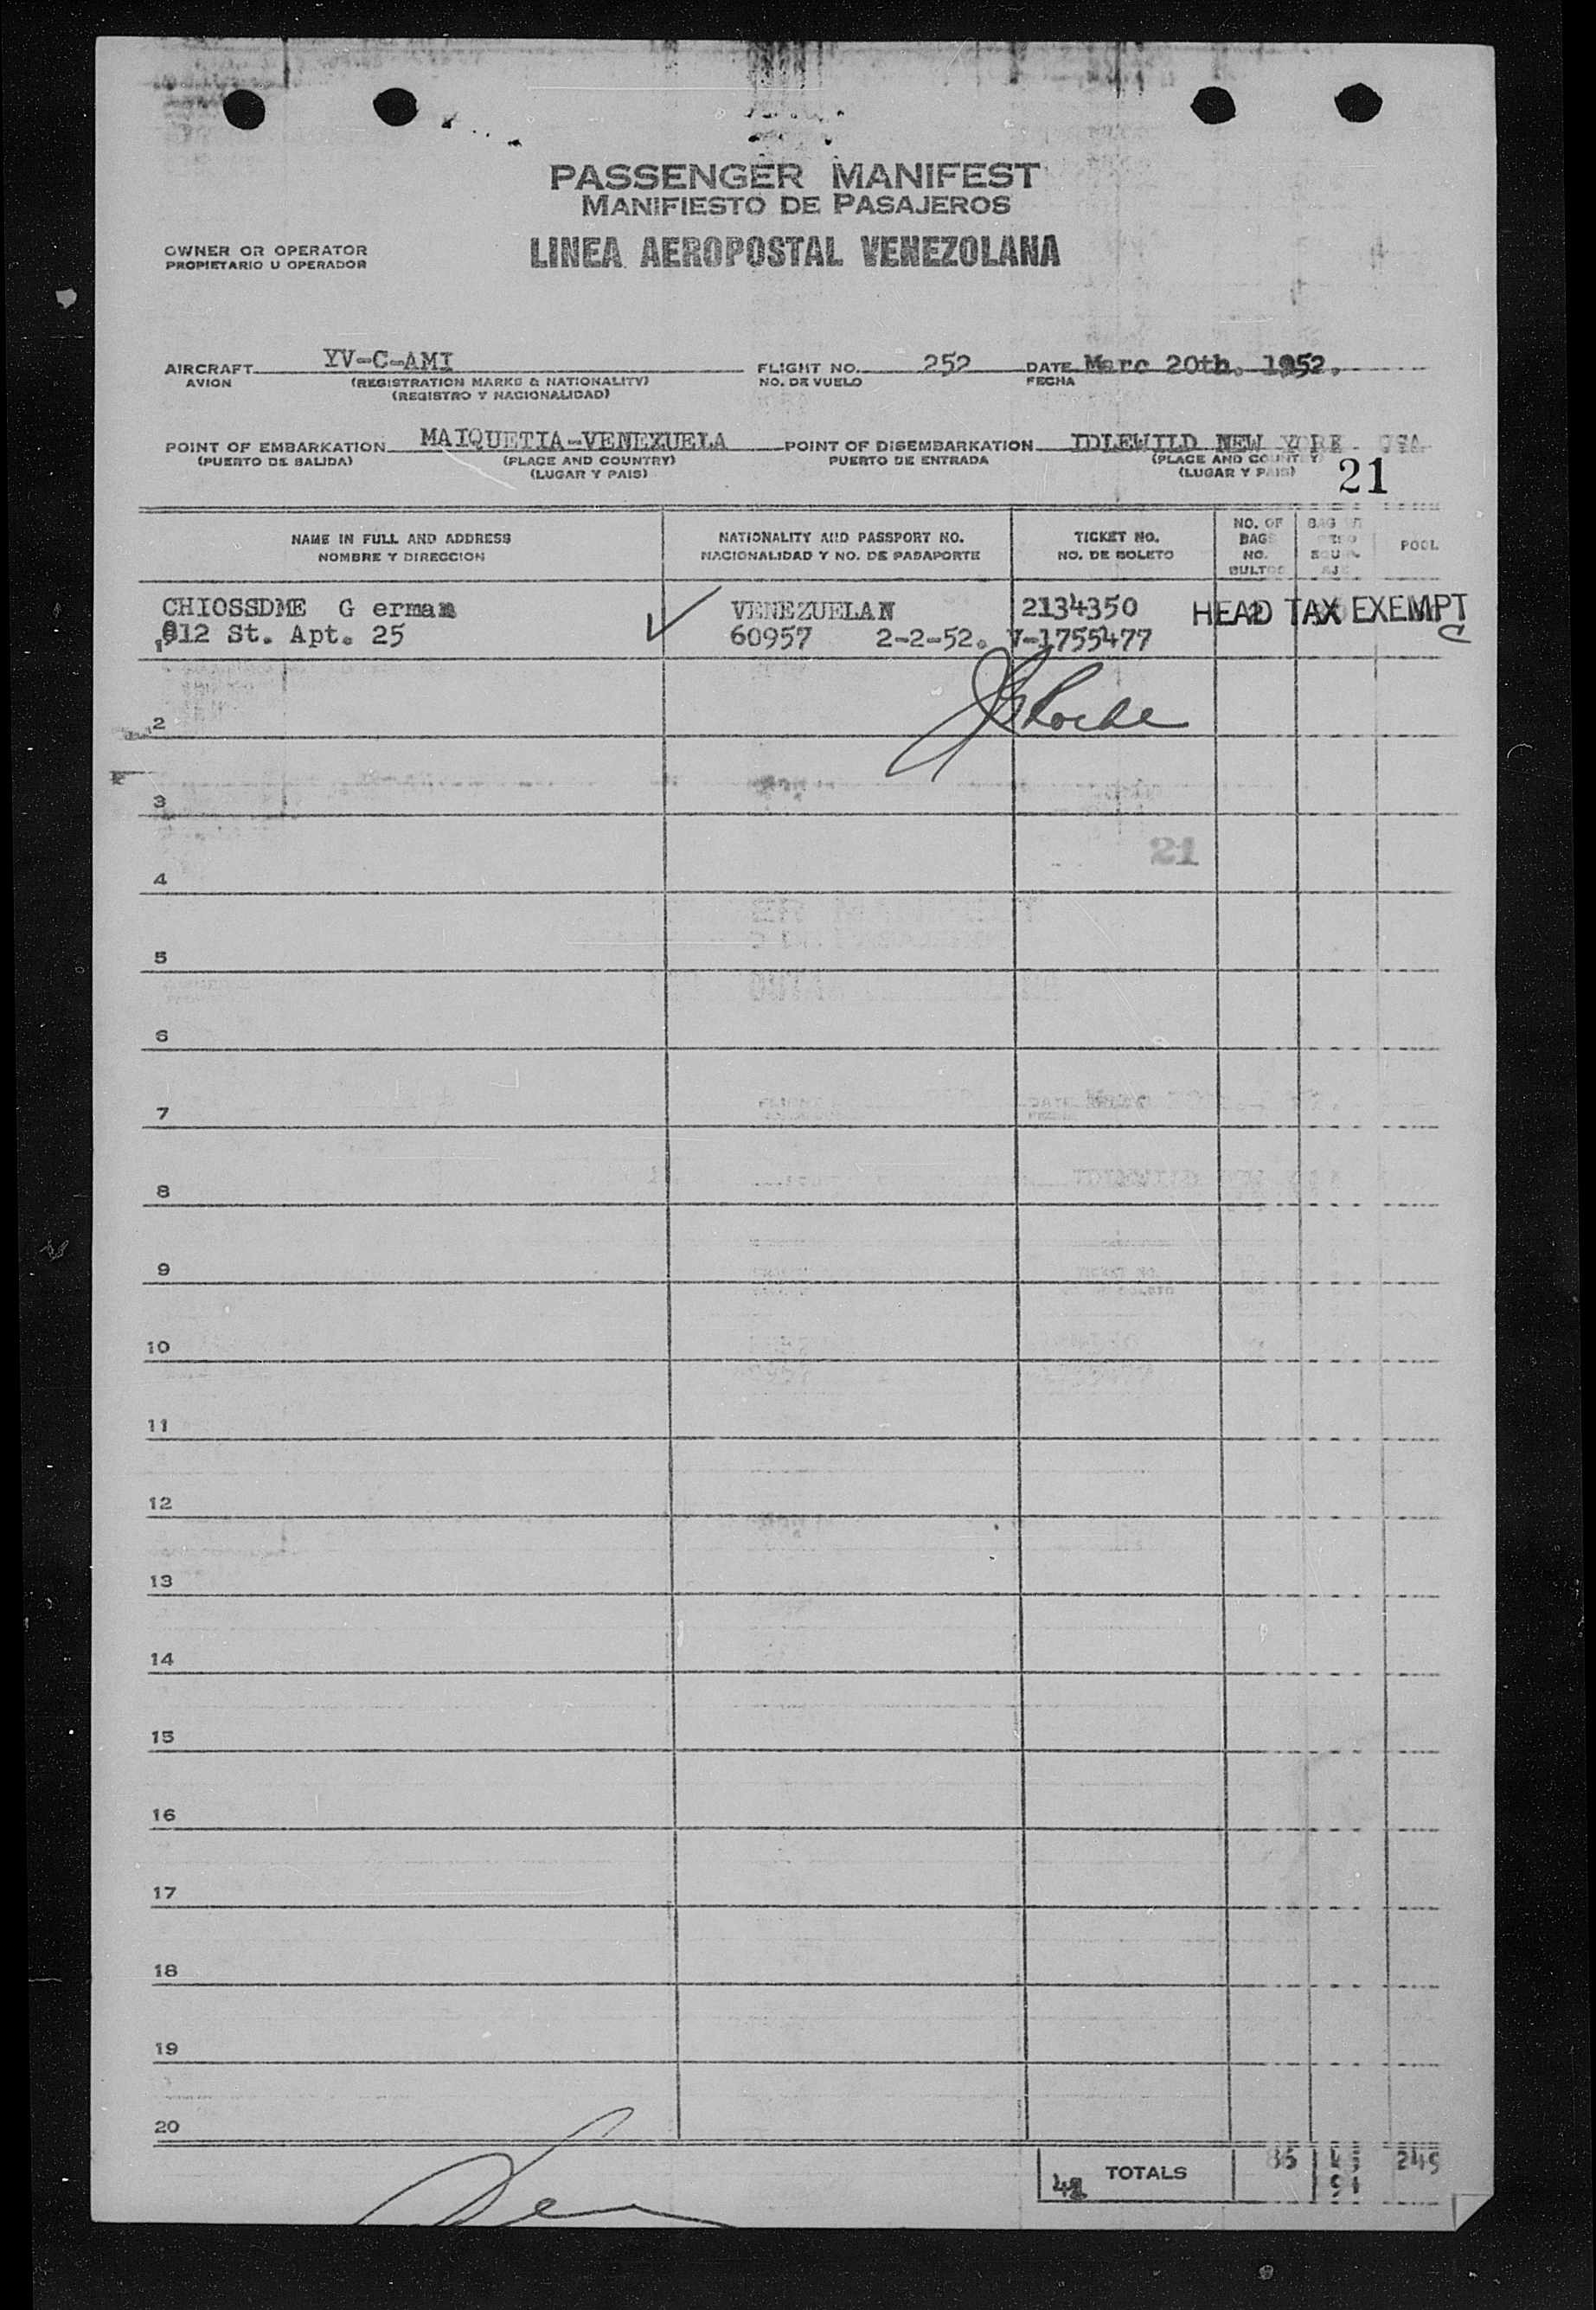 PASSENGER MANIFEST
MANIFIESTO DE PASAJEROS
OWNER OR OPERATOR
PROPIETARIO U OPERADOR
LINEA AEROPOSTAL VENEZOLANA
AIRCRAFT YV-C-AMI FLIGHT NO. 252 DATE Marc 20th. 1952.
AVION (REGISTRATION MARKS & NATIONALITY) NO. DE VUELO FECHA
(REGISTRO Y NACIONALIDAD)
POINT OF EMBARKATION MAIQUETIA-VENEZUELA POINT OF DISEMBARKATION IDLEWILD NEW YORK USA
(PUERTO DE SALIDA) (PLACE AND COUNTRY) PUERTO DE ENTRADA (PLACE AND COUNTRY)
(LUGAR Y PAIS) (LUGAR Y PAIS)
21
NAME IN FULL AND ADDRESS NATIONALITY AND PASSPORT NO. TICKET NO. NO. OF BAGS POOL
NOMBRE Y DIRECCION NACIONALIDAD Y NO. DE PASAPORTE NO. DE BOLETO NO. BULTOS
CHIOSSDME G erman VENEZUELAN 2134350 HEAD TAX EXEMPT
812 St. Apt. 25 60957 2-2-52. V-1755477 C
2
3
21
4
5
6
7
8
9
10
11
12
13
14
15
16
17
18
19
20
TOTALS 245